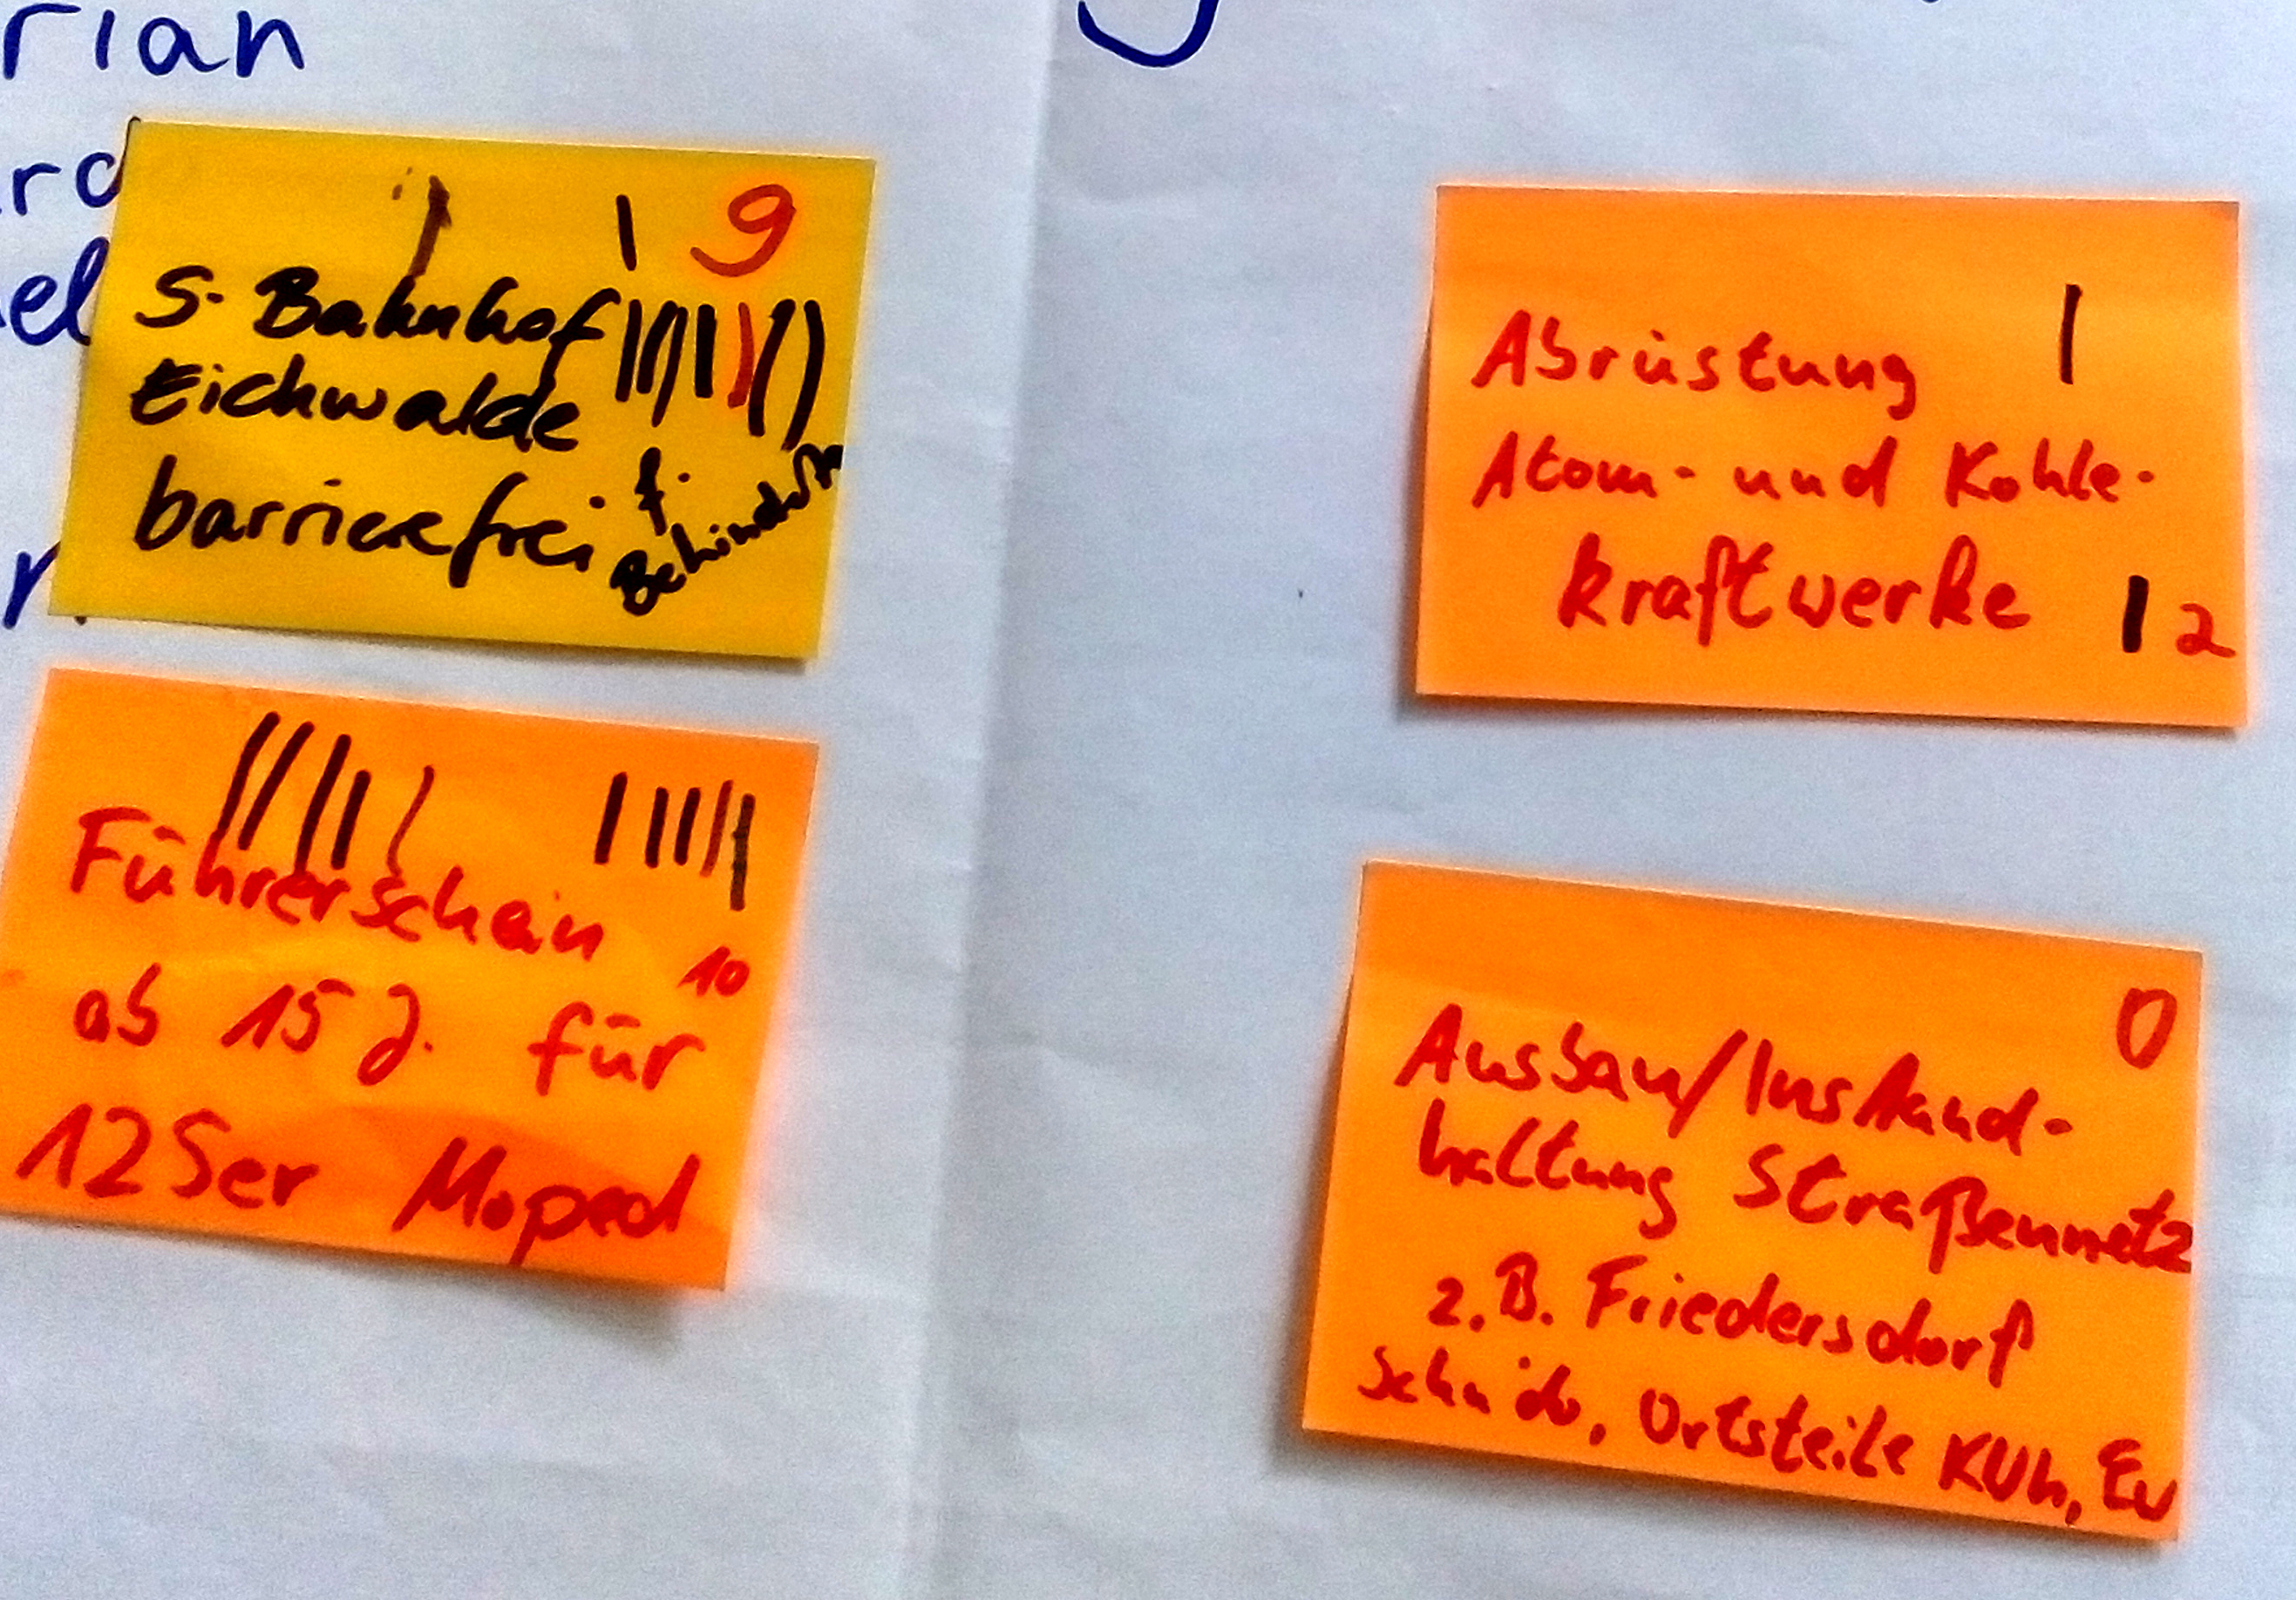 rian
9
S-Bahnhof
Eichwalde
barrierefrei f.
Behinderte
Führerschein
10
ab 15 J. für
125er Moped
Abrüstung
Atom- und Kohle-
kraftwerke 2
0
Ausbau/Instand-
haltung Straßennetz
z.B. Friedersdorf
Ortsteile KUh, Ew